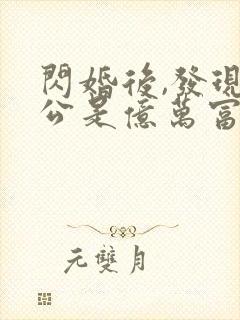 閃婚後,發現
公是億萬富
元雙月